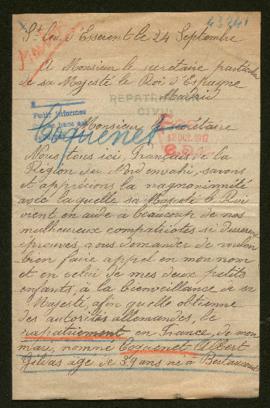 St Leu d'Esserent le 24 Septembre
A Monsieur le secrétaire particulier
de sa Majesté le Roi d'Espagne
Madrid
REPATRI
CIVIL
Pedir Informes
Coquenet
Monsieur le Secrétaire
Nous tous ici, Français de la
Région du Nord envahi, savons
et apprécions la magnanimité
avec laquelle sa Majesté le Roi
vient en aide à beaucoup de nos
malheureux compatriotes si
éprouvés, vous demander de vouloir
bien faire appel en mon nom
et en celui de mes deux petits
enfants, à la bienveillance de sa
Majesté, afin qu'elle obtienne
des autorités allemandes, le
rapatriement en France, de mon
mari, nommé Coquenet Albert
âgé de 39 ans né à